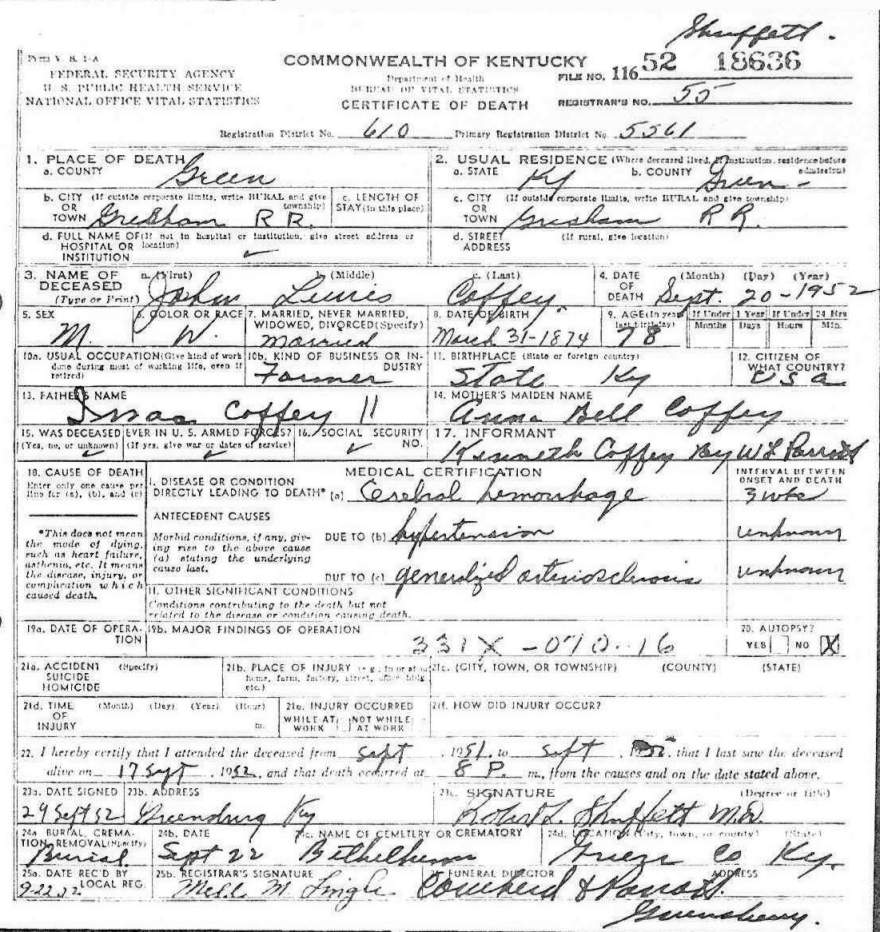 Shuffett.
Form V. S. 1-A
FEDERAL SECURITY AGENCY
U. S. PUBLIC HEALTH SERVICE
NATIONAL OFFICE VITAL STATISTICS
COMMONWEALTH OF KENTUCKY
Department of Health
BUREAU OF VITAL STATISTICS
CERTIFICATE OF DEATH
FILE NO. 116 52 18636
REGISTRAR'S NO. 55
Registration District No. 610 Primary Registration District No. 5561
1. PLACE OF DEATH
a. COUNTY Green
2. USUAL RESIDENCE (Where deceased lived. If institution, residence before admission)
a. STATE Ky b. COUNTY Green
b. CITY (If outside corporate limits, write RURAL and give township)
OR TOWN Gresham R R.
c. LENGTH OF STAY (in this place)
c. CITY (If outside corporate limits, write RURAL and give township)
OR TOWN Gresham R R.
d. FULL NAME OF (If not in hospital or institution, give street address or location)
HOSPITAL OR INSTITUTION ✓
d. STREET ADDRESS (If rural, give location)
3. NAME OF DECEASED (Type or Print)
a. (First) John b. (Middle) Lewis c. (Last) Coffey
4. DATE OF DEATH (Month) (Day) (Year) Sept. 20-1952
5. SEX M.
6. COLOR OR RACE W.
7. MARRIED, NEVER MARRIED, WIDOWED, DIVORCED (Specify) Married
8. DATE OF BIRTH March 31-1874
9. AGE (In years last birthday) 78
If Under 1 Year Months Days
If Under 24 Hrs Hours Min.
10a. USUAL OCCUPATION (Give kind of work done during most of working life, even if retired)
10b. KIND OF BUSINESS OR INDUSTRY Farmer
11. BIRTHPLACE (State or foreign country) State Ky
12. CITIZEN OF WHAT COUNTRY? USA
13. FATHER'S NAME Coffey
14. MOTHER'S MAIDEN NAME Anna Bell Coffey
15. WAS DECEASED EVER IN U. S. ARMED FORCES?
(Yes, no, or unknown) (If yes, give war or dates of service)
16. SOCIAL SECURITY NO.
17. INFORMANT Kenneth Coffey By W L Parrott
18. CAUSE OF DEATH
Enter only one cause per line for (a), (b), and (c)
MEDICAL CERTIFICATION
INTERVAL BETWEEN ONSET AND DEATH
I. DISEASE OR CONDITION DIRECTLY LEADING TO DEATH* (a) Cerebral hemorrhage 3 wks
*This does not mean the mode of dying, such as heart failure, asthenia, etc. It means the disease, injury, or complication which caused death.
ANTECEDENT CAUSES
Morbid conditions, if any, giving rise to the above cause (a) stating the underlying cause last.
DUE TO (b) hypertension unknown
DUE TO (c) generalized arteriosclerosis unknown
II. OTHER SIGNIFICANT CONDITIONS
Conditions contributing to the death but not related to the disease or condition causing death.
19a. DATE OF OPERATION
19b. MAJOR FINDINGS OF OPERATION
331X-070-16
20. AUTOPSY?
YES NO X
21a. ACCIDENT SUICIDE HOMICIDE (Specify)
21b. PLACE OF INJURY (e.g., in or about home, farm, factory, street, office bldg. etc.)
21c. (CITY, TOWN, OR TOWNSHIP) (COUNTY) (STATE)
21d. TIME OF INJURY (Month) (Day) (Year) (Hour) m.
21e. INJURY OCCURRED
WHILE AT WORK NOT WHILE AT WORK
21f. HOW DID INJURY OCCUR?
22. I hereby certify that I attended the deceased from Sept, 1951, to Sept, 1952, that I last saw the deceased
alive on 17 Sept, 1952, and that death occurred at 8 P. m., from the causes and on the date stated above.
23a. DATE SIGNED 29 Sept 52
23b. ADDRESS Greensburg Ky
23c. SIGNATURE (Degree or title) Robert L. Shuffett M.D.
24a. BURIAL, CREMATION, REMOVAL (Specify) Burial
24b. DATE Sept 22
24c. NAME OF CEMETERY OR CREMATORY Bethlehem
24d. LOCATION (City, town, or county) (State) Green Co Ky.
25a. DATE REC'D BY LOCAL REG. 9-22-52
25b. REGISTRAR'S SIGNATURE M. Lingle
FUNERAL DIRECTOR ADDRESS
Cowherd & Parrott.
Greensburg.